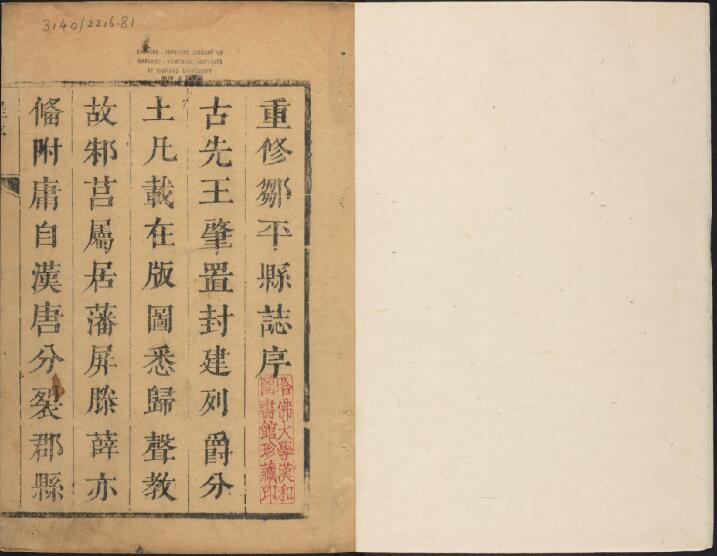 3140/2216.81
CHINESE - JAPANESE LIBRARY OF
HARVARD - YENCHING INSTITUTE
AT HARVARD UNIVERSITY
重修鄒平縣誌序
古先王肇置封建列爵分
土凡載在版圖悉歸聲教
故邾莒屬居藩屏滕薛亦
俻附庸自漢唐分裂郡縣
哈佛大學漢和
圖書館珍藏印